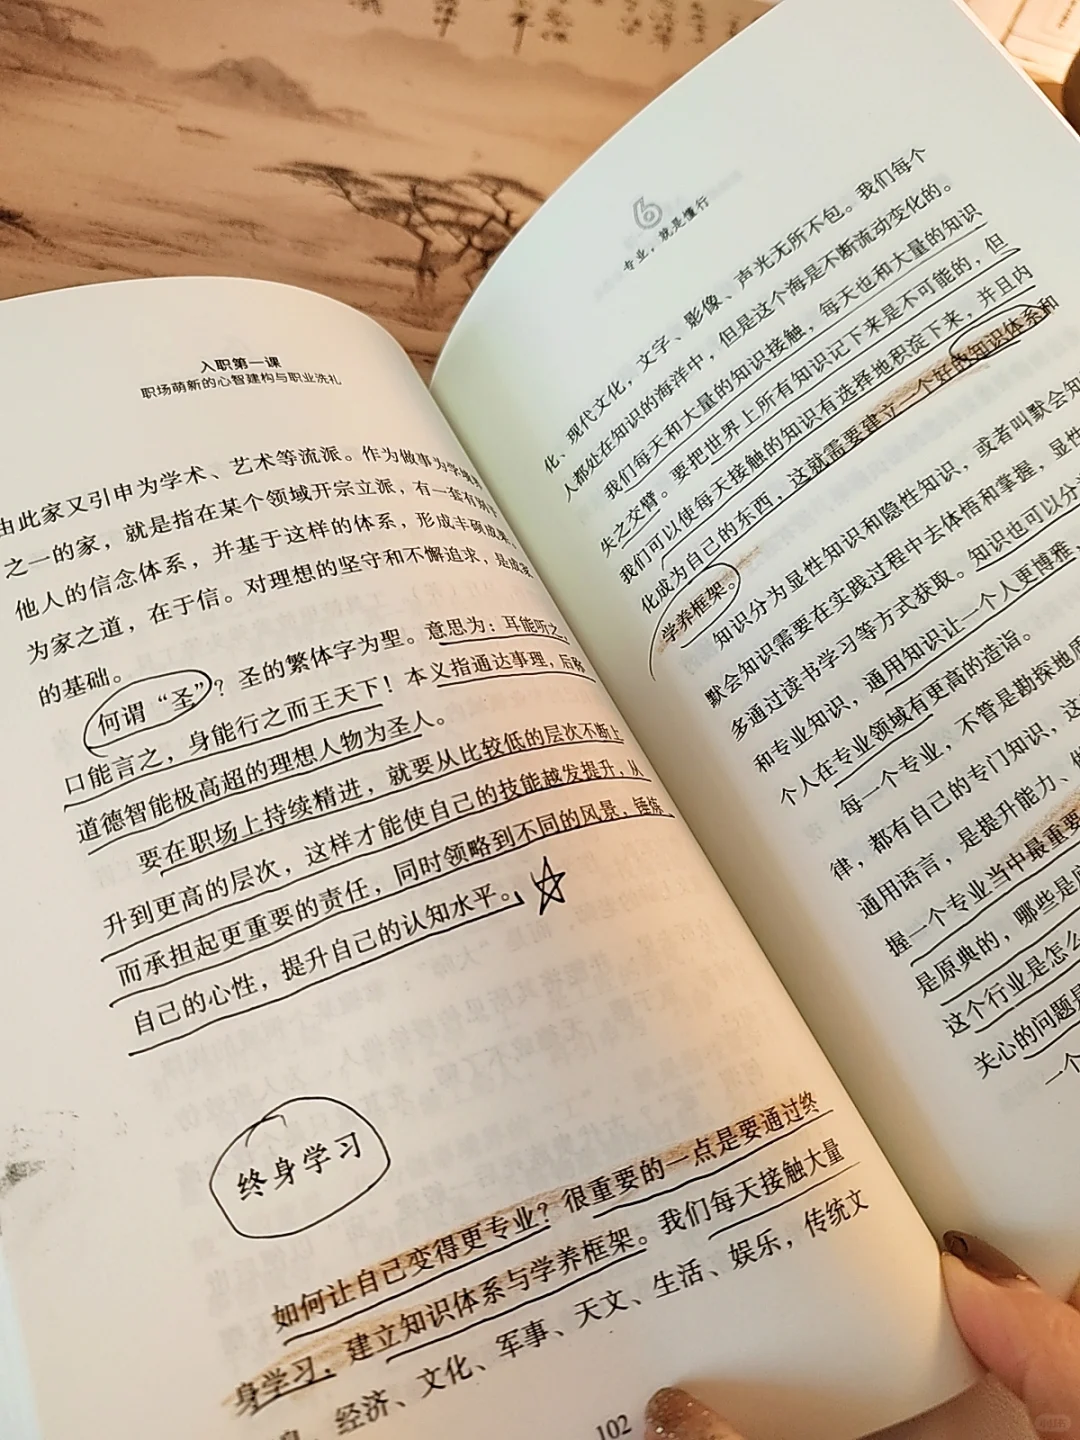 入职第一课
职场萌新的心智建构与职业洗礼
由此家又引申为学术、艺术等流派。作为做事为学境界
之一的家，就是指在某个领域开宗立派，有一套有别于
他人的信念体系，并基于这样的体系，形成丰硕成果。
为家之道，在于信。对理想的坚守和不懈追求，是成家
的基础。
何谓“圣”？圣的繁体字为聖。意思为：耳能听之，
口能言之，身能行之而王天下！本义指通达事理，后称
道德智能极高超的理想人物为圣人。
要在职场上持续精进，就要从比较低的层次不断上
升到更高的层次，这样才能使自己的技能越发提升，从
而承担起更重要的责任，同时领略到不同的风景，锤炼
自己的心性，提升自己的认知水平。
终身学习
如何让自己变得更专业？很重要的一点是要通过终
身学习，建立知识体系与学养框架。我们每天接触大量
息，经济、文化、军事、天文、生活、娱乐，传统文
102
6
专业，就是懂行
化、现代文化，文字、影像、声光无所不包。我们每个
人都处在知识的海洋中，但是这个海是不断流动变化的。
我们每天和大量的知识接触，每天也和大量的知识
失之交臂。要把世界上所有知识记下来是不可能的，但
我们可以使每天接触的知识有选择地积淀下来，并且内
化成为自己的东西，这就需要建立一个好的知识体系和
学养框架。
知识分为显性知识和隐性知识，或者叫默会知
默会知识需要在实践过程中去体悟和掌握，显性
多通过读书学习等方式获取。知识也可以分
和专业知识，通用知识让一个人更博雅，
个人在专业领域有更高的造诣。
每一个专业，不管是勘探地质
律，都有自己的专门知识，这
通用语言，是提升能力、做
握一个专业当中最重要
是原典的，哪些是
这个行业是怎么
关心的问题是
一个